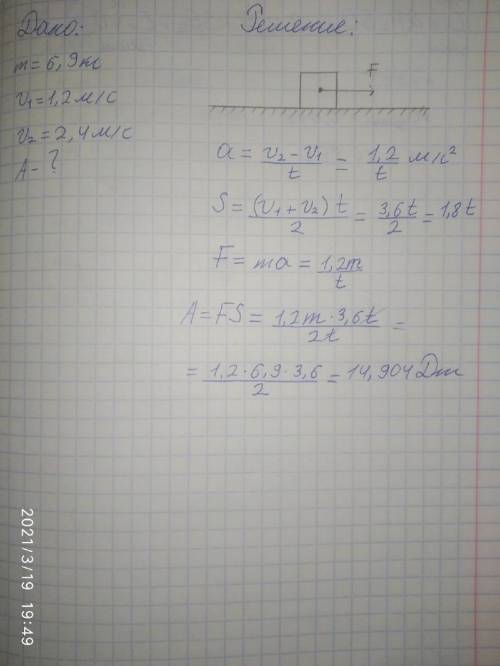 Дано:
m = 6,9 кг
v₁ = 1,2 м/с
v₂ = 2,4 м/с
A - ?
Решение:
F
a = (v₂ - v₁)/t = 1,2/t м/с²
S = (v₁ + v₂) t/2 = 3,6 t/2 = 1,8 t
F = ma = 1,2m/t
A = FS = 1,2m · 3,6t/2t =
= 1,2 · 6,9 · 3,6/2 = 14,904 Дж
2021/3/19 19:49